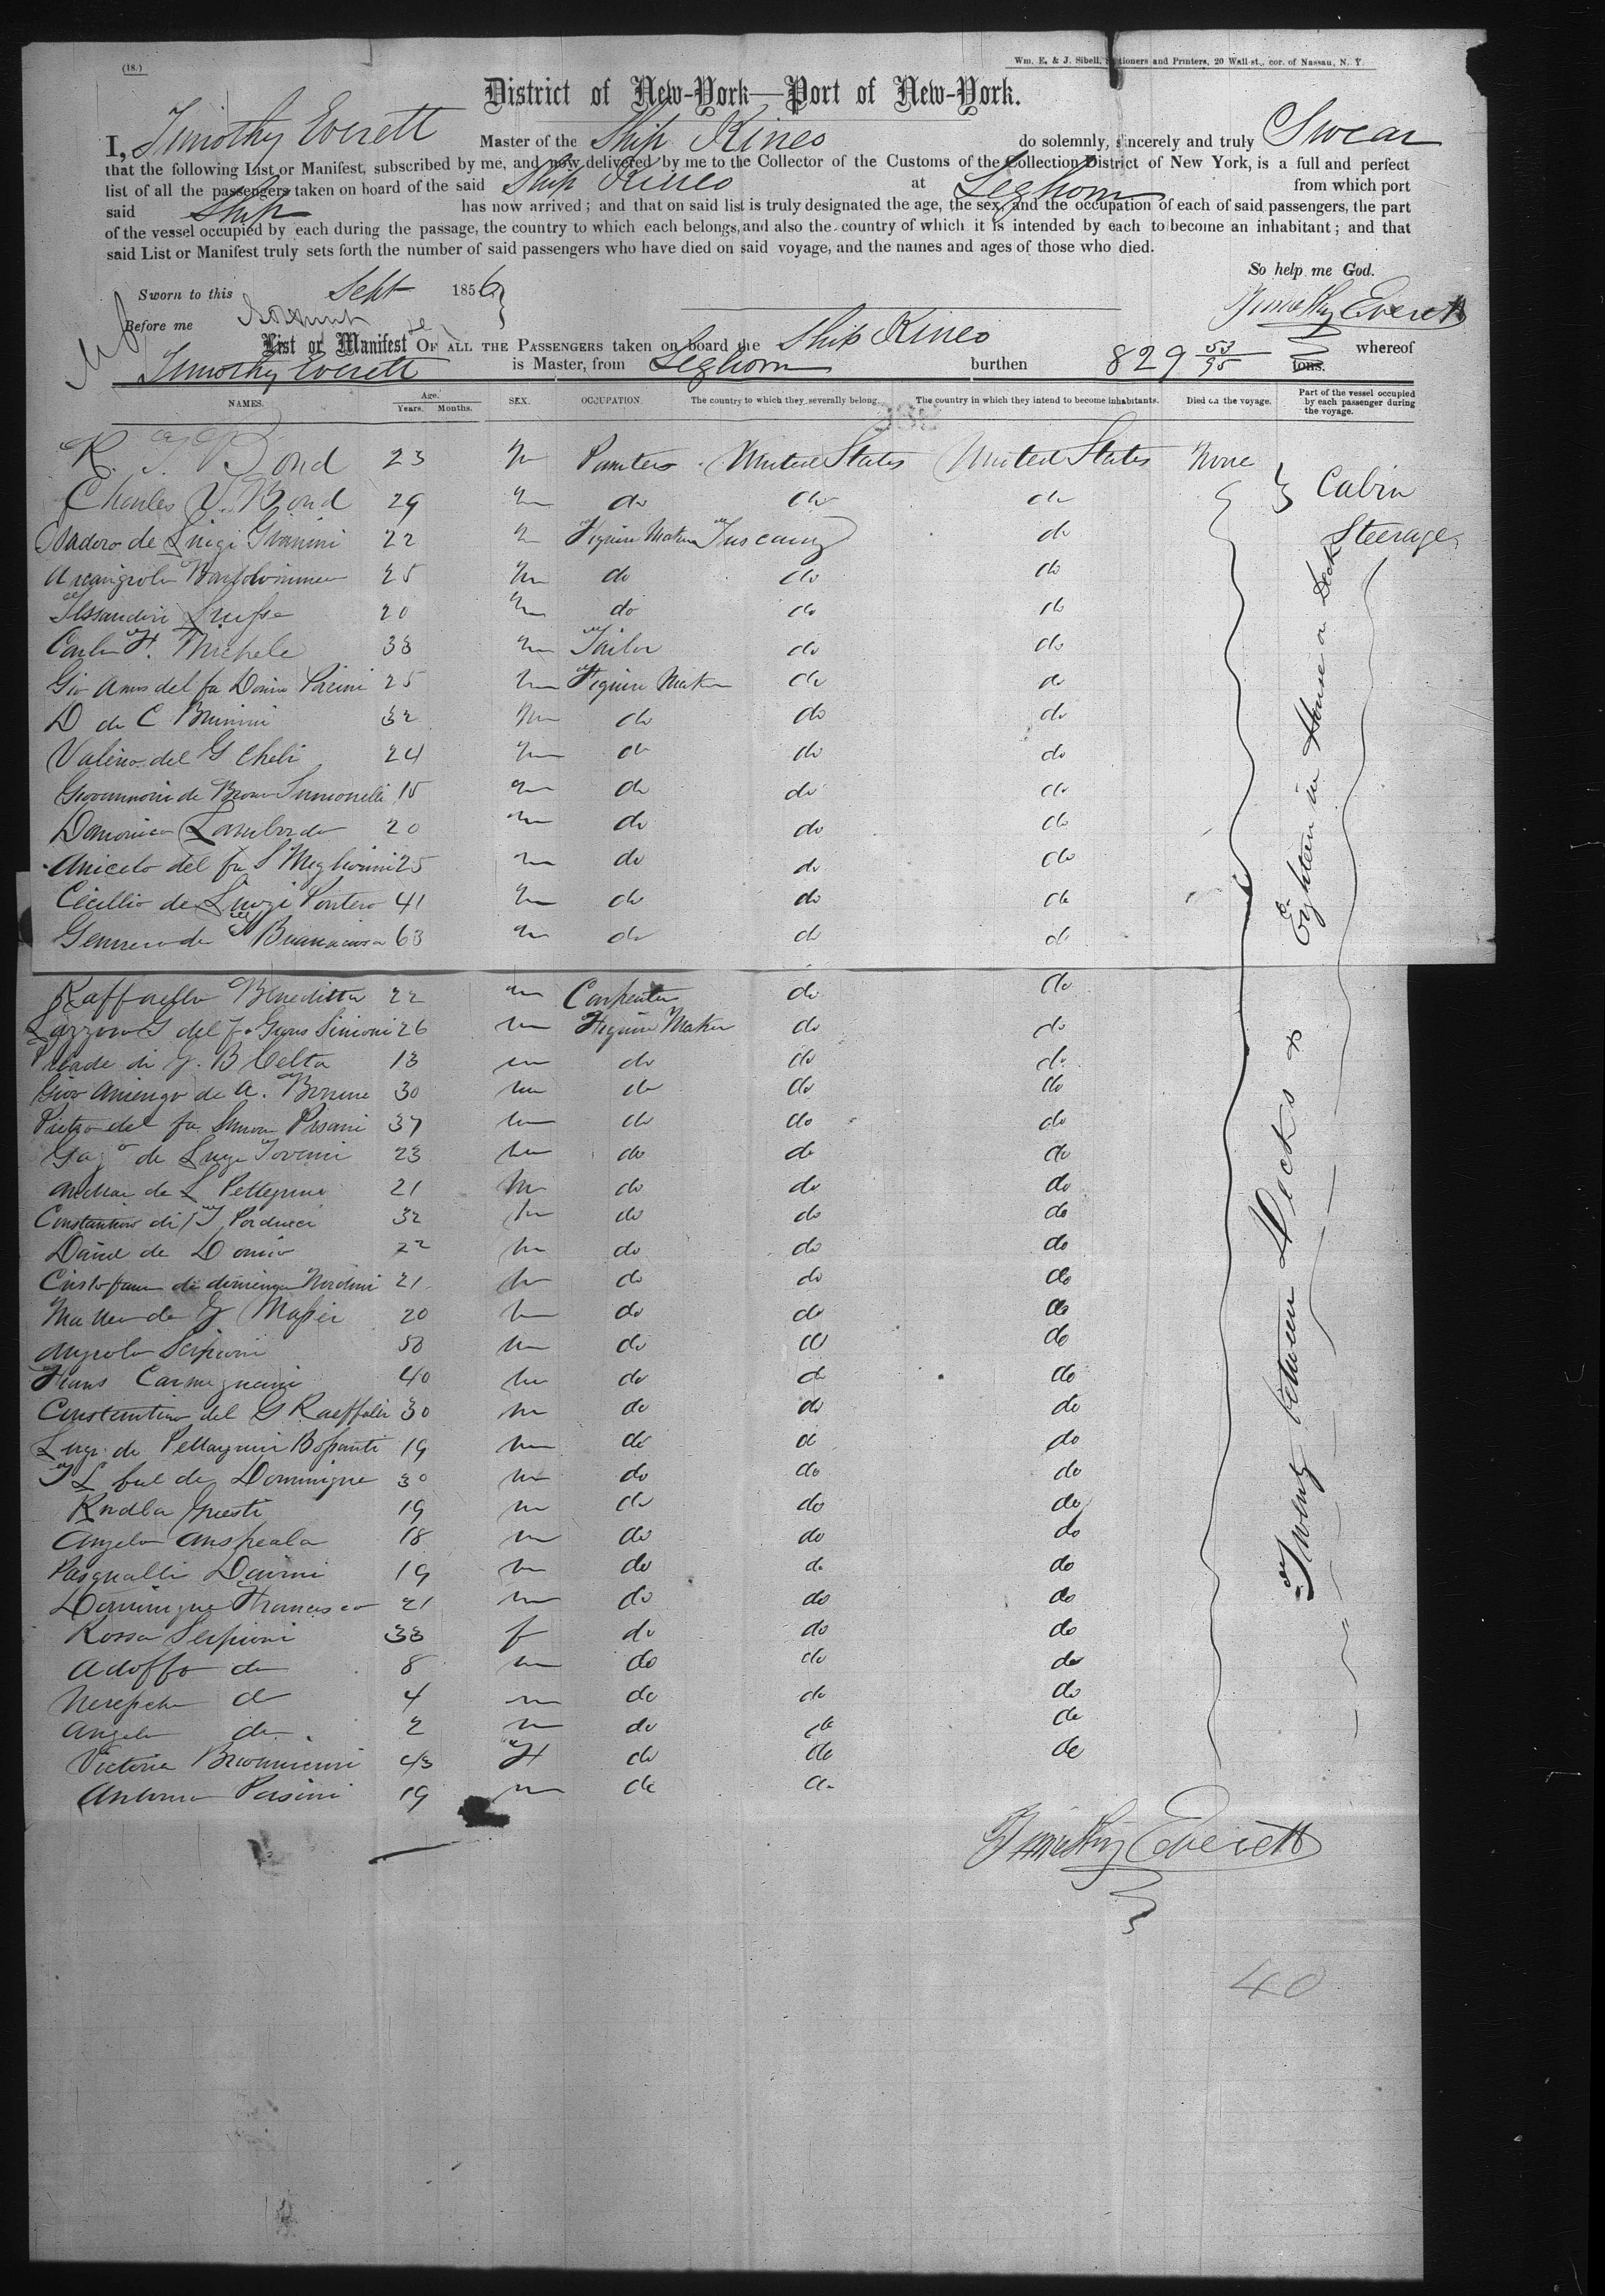 (18.)
Wm. E. & J. Sibell, Stationers and Printers, 20 Wall-st., cor. of Nassau, N. Y.
District of New-York—Port of New-York.
I, Timothy Everett Master of the Ship Kineo do solemnly, sincerely and truly Swear
that the following List or Manifest, subscribed by me, and now delivered by me to the Collector of the Customs of the Collection District of New York, is a full and perfect
list of all the passengers taken on board of the said Ship Kineo at Leghorn from which port
said Ship has now arrived; and that on said list is truly designated the age, the sex, and the occupation of each of said passengers, the part
of the vessel occupied by each during the passage, the country to which each belongs, and also the country of which it is intended by each to become an inhabitant; and that
said List or Manifest truly sets forth the number of said passengers who have died on said voyage, and the names and ages of those who died.
So help me God.
Sworn to this Sept 1856
Timothy Everett
Before me
List or Manifest OF ALL THE PASSENGERS taken on board the Ship Kineo whereof
Timothy Everett is Master, from Leghorn burthen 829 53/95 tons.
NAMES. Age. Years. Months. SEX. OCCUPATION. The country to which they severally belong. The country in which they intend to become inhabitants. Died on the voyage. Part of the vessel occupied by each passenger during the voyage.
R. T. Bond 23 m Painters United States United States None
Charles V. Bond 29 m do do do Cabin
de Luigi Giannini 22 m Figure Maker Tuscany do Steerage
Bartolommeo 25 m do do do
20 m do do do
Carlo F. Michele 38 m Tailor do do
Gio Amos del fu Domo Pacini 25 m Figure Maker do do
D de C Brunini 32 m do do do
Valino del G Cheli 24 m do do do
de Simonelli 15 m do do do
Domonico Lombardo 20 m do do do
Aniceto del fu S Meglionni 25 m do do do
Cecillio de Luigi Pontero 41 m do do do
63 m do do do
Raffaello Beneditto 22 m Carpenter do do
Lazzaro G del fu Simoni 26 m Figure Maker do do
di G. B Celta 13 m do do do
de A. 30 m do do do
Pietro del fu Simon Pisani 37 m do do do
de Luigi 23 m do do do
de L Pellegrini 21 m do do do
Constantino di T Porducci 32 m do do do
Daniel de Domio 22 m do do do
Cristofano di Nardini 21 m do do do
de G 20 m do do do
Angiolo Scipioni 50 m do do do
Frans Carmignani 40 m do do do
Constantino del G Raeffalli 30 m do do do
Luigi de Pellagrini 19 m do do do
de Dominique 30 m do do do
Giusti 19 m do do do
Angelo 18 m do do do
Pasqualli Davini 19 m do do do
Dominique Francisco 21 m do do do
Rossa Scipioni 33 f do do do
Adolfo do 8 m do do do
do 4 m do do do
Angelo do 2 m do do do
Victoria 43 F do do do
Antonio Pasini 19 m do do
Eighteen in House on Deck
Twenty between Decks
Timothy Everett
40